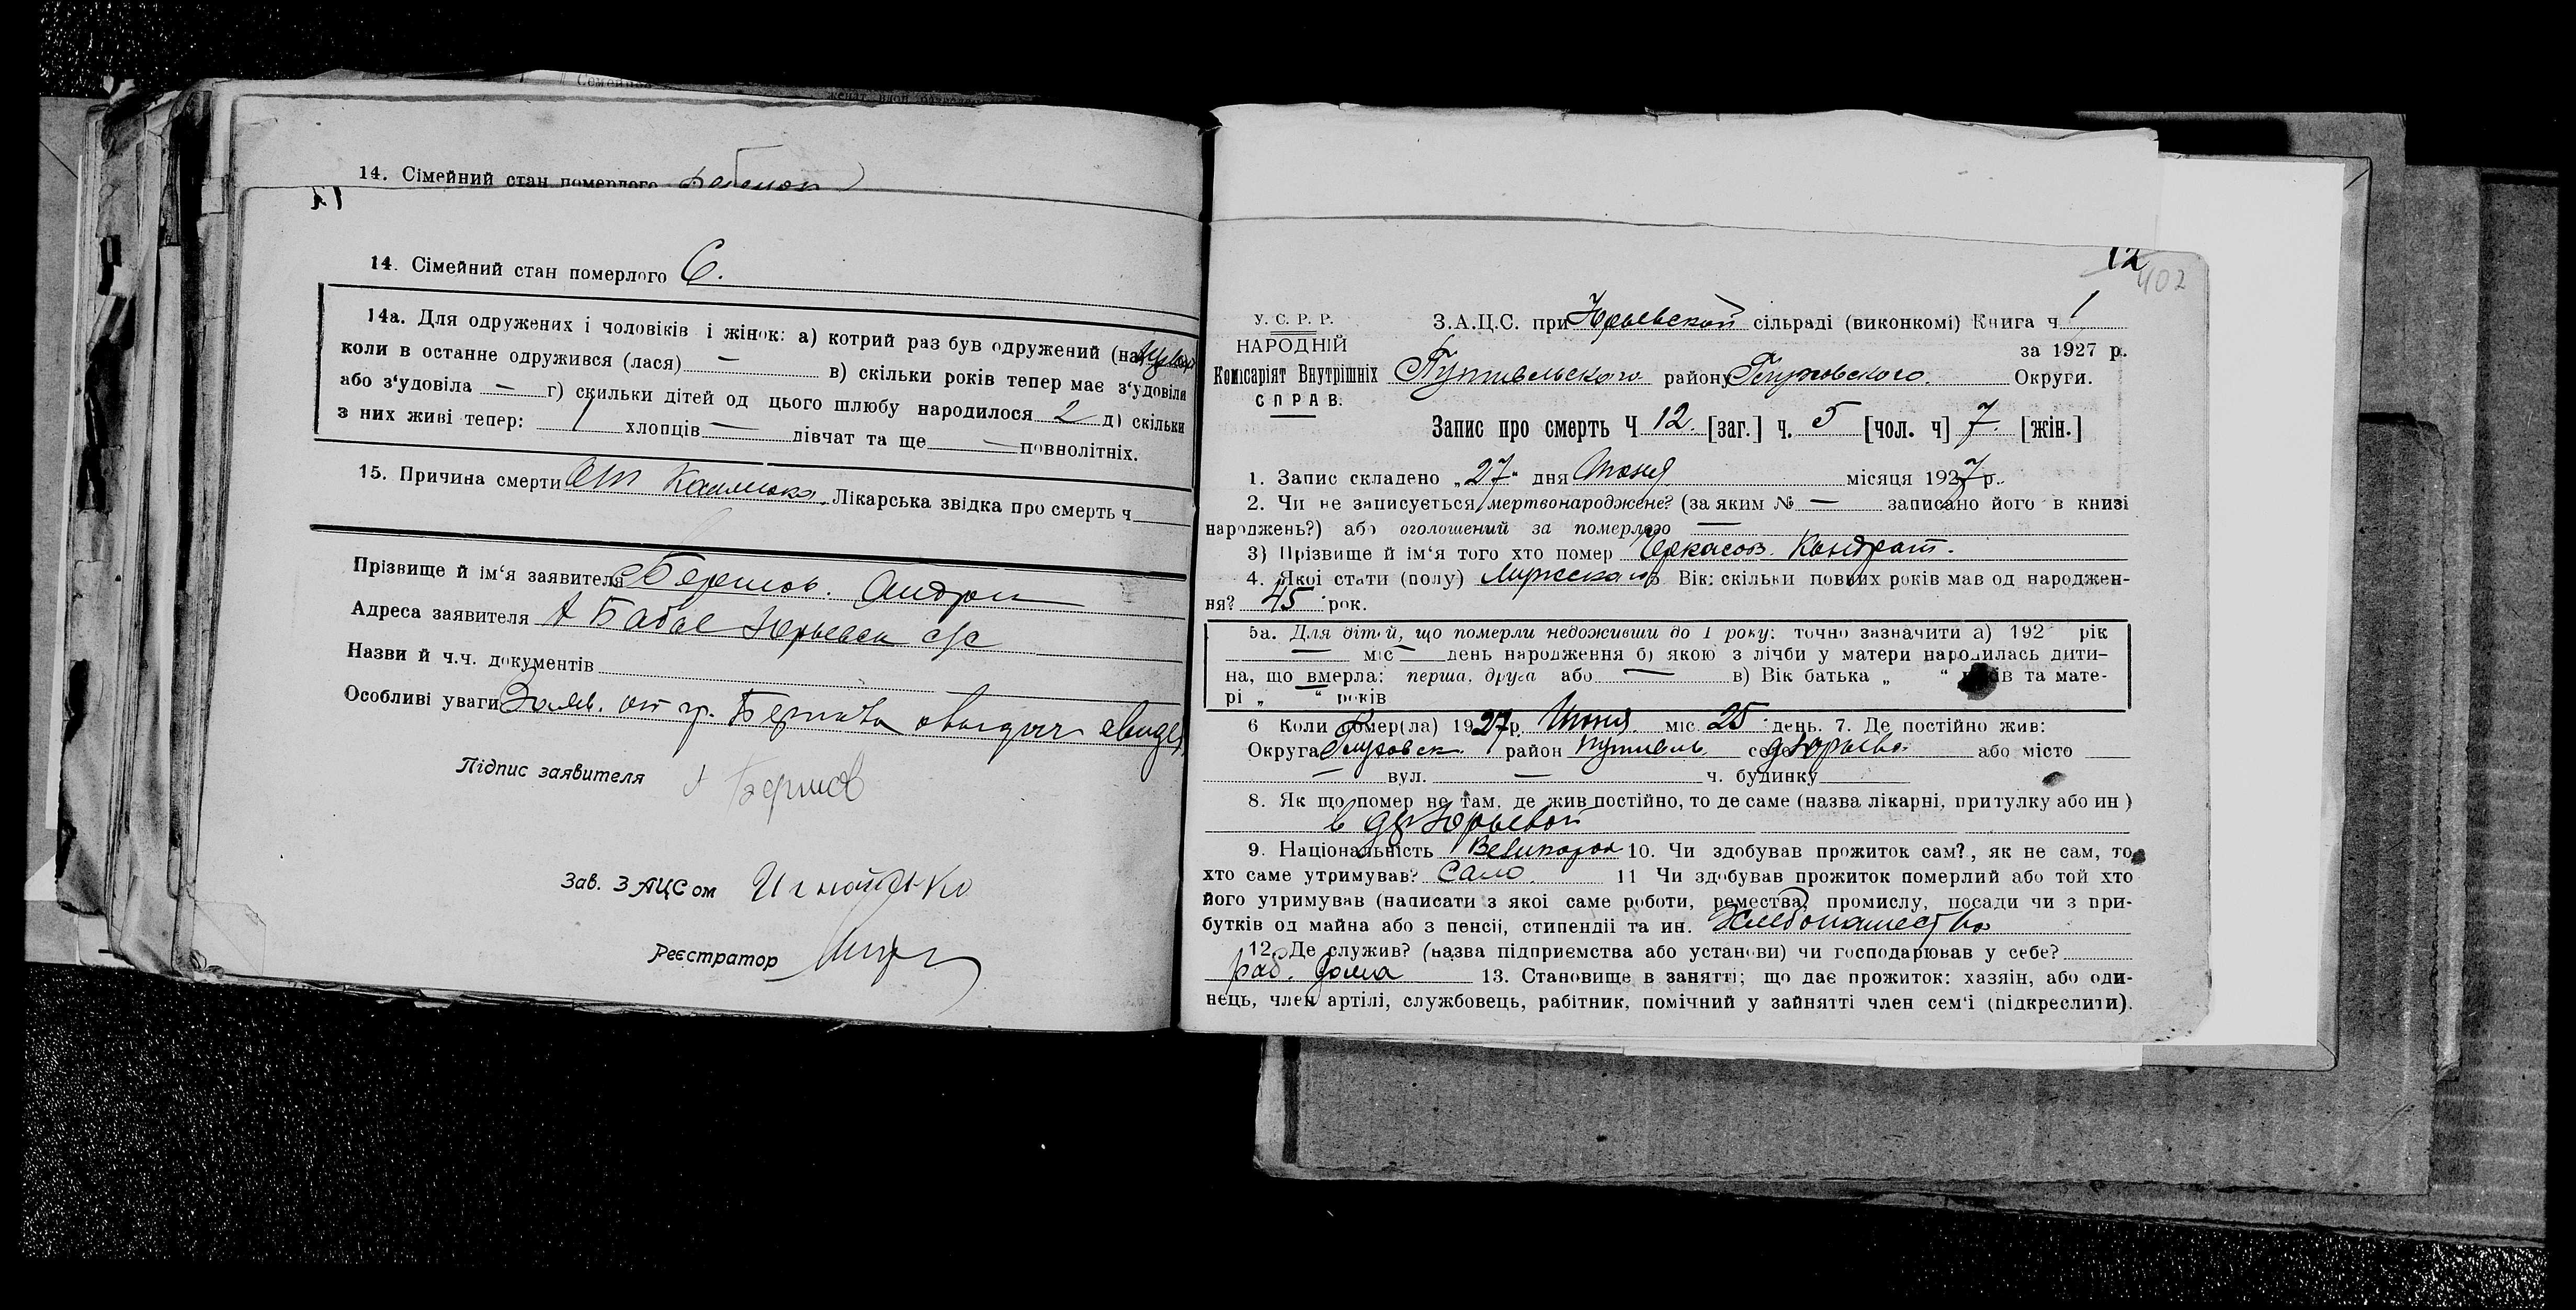 14. Сімейний стан померлого
14. Сімейний стан померлого С.
14а. Для одружених і чоловіків і жінок: а) котрий раз був одружений (на
коли в останне одружився (лася) — в) скільки років тепер має з'удовіля
або з'удовіла — г) скильки дітей од цього шлюбу народилося 2 д) скільки
з них живі тепер: 1 хлопців — дівчат та ще — повнолітніх.
15. Причина смерти От Лікарська звідка про смерть ч
Прізвище й ім'я заявителя Андрон
Адреса заявителя Юрьевск с/с
Назви й ч.ч. документів
Особливі уваги Заяв. от гр.
Підпис заявителя
Зав. ЗАЦСом
Реєстратор
12
402
У. С. Р. Р.
НАРОДНІЙ
Комісаріят Внутрішніх
СПРАВ.
З.А.Ц.С. при Юрьевской сільраді (виконкомі) Книга ч 1
за 1927 р.
Путивльского району Глуховского Округи.
Запис про смерть Ч 12. [заг.] ч. 5 [чол. ч] 7. [жін.]
1. Запис складено „27" дня Июня місяця 1927 р.
2. Чи не записується мертвонароджене? (за яким № — записано його в книзі
народжень?) або оголошений за померлого —
3) Прізвище й ім'я того хто помер Черкасов Кондрат.
4. Якої стати (полу) Мужского 5. Вік: скільки повних років мав од народжен-
ня? 45 рок.
5а. Для дітей, що померли недоживши до 1 року: точно зазначити а) 192 рік
— міс — день народження б) якою з лічби у матери народилась дити-
на, що вмерла: перша, друга або — в) Вік батька „ " років та мате-
рі „ " років
6 Коли помер(ла) 1927 р. Июня міс. 25 день. 7. Де постійно жив:
Округа Глуховск. район Путивль село д Юрьево або місто —
— вул. — ч. будинку
8. Як що помер не там, де жив постійно, то де саме (назва лікарні, притулку або ин)
в дер Юрьевой
9. Національність Великорос 10. Чи здобував прожиток сам?, як не сам, то
хто саме утримував? Само 11 Чи здобував прожиток померлий або той хто
його утримував (написати з якоі саме роботи, ремества, промислу, посади чи з при-
бутків од майна або з пенсії, стипендії та ин. Хлебопашество
12. Де служив? (назва підприємства або установи) чи господарював у себе?
раб. дома 13. Становище в занятті; що дає прожиток: хазяін, або оди-
нець, член артілі, службовець, рабітник, помічний у зайнятті член сем'і (підкреслити).